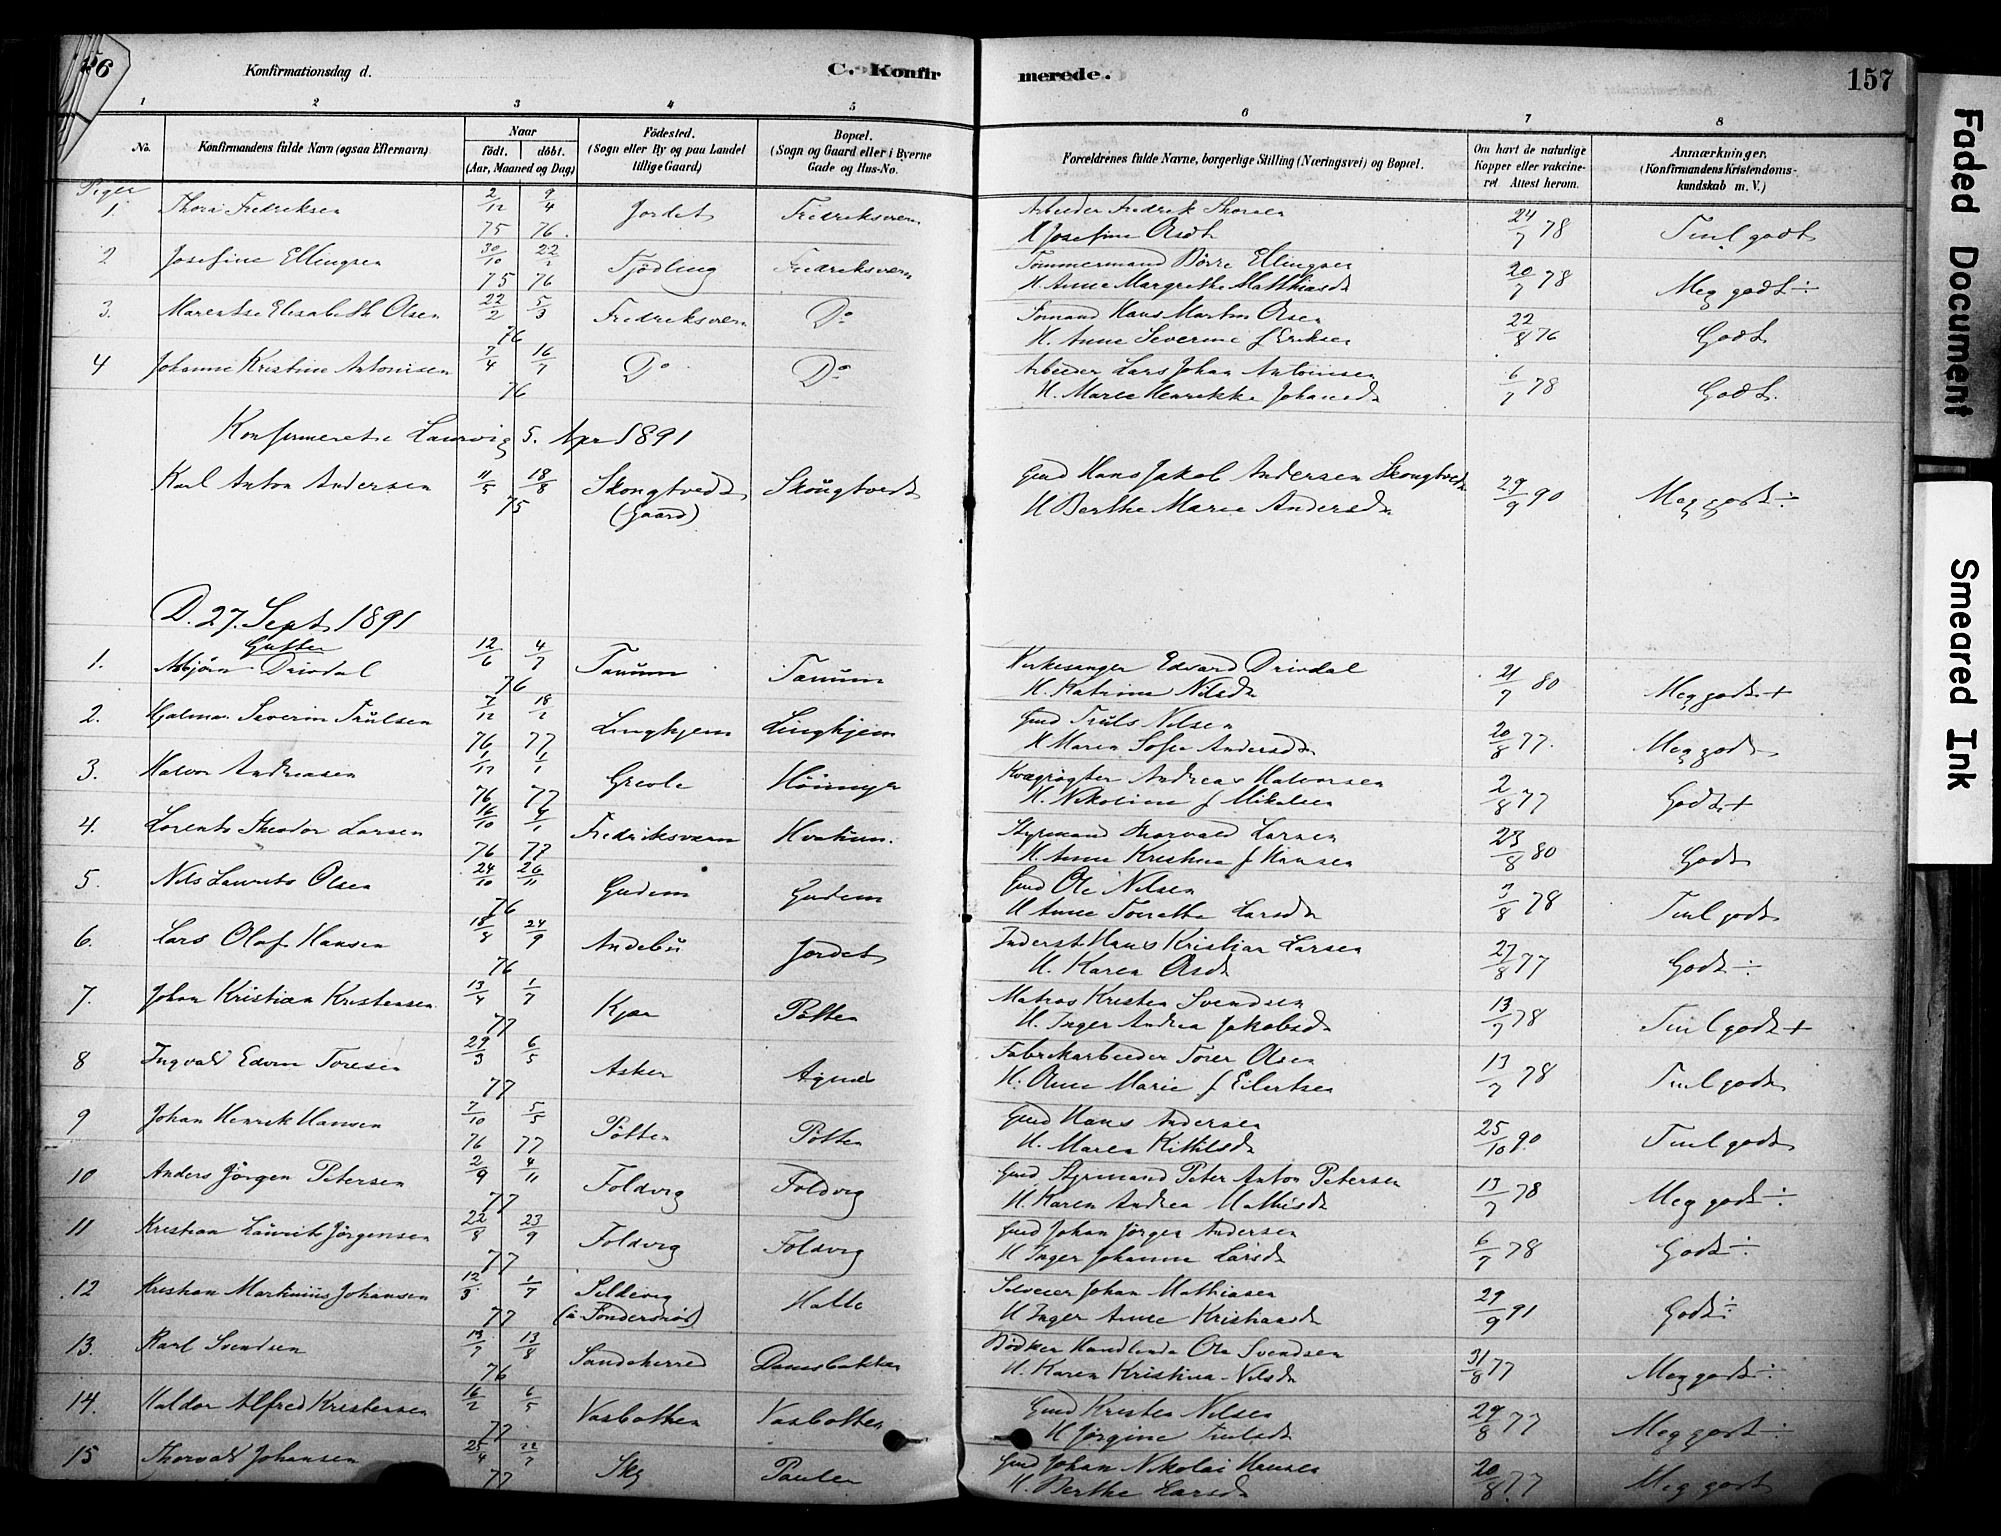 Konfirmationsdag d.
C. Konfirmerede.
157
1 2 3 4 5 6 7 8
No.
Konfirmandens fulde Navn (ogsaa Efternavn)
Naar
født. døbt.
(Aar, Maaned og Dag)
Fødested.
(Sogn eller By og paa Landet tillige Gaard)
Bopæl.
(Sogn og Gaard eller i Byerne Gade og Hus-No.
Forældrenes fulde Navne, borgerlige Stilling (Næringsvei) og Bopæl.
Om havt de naturlige Kopper eller vakcineret. Attest herom.
Anmærkninger.
(Konfirmandens Kristendomskundskab m. V.)
Piger
1. Thora Fredriksen 2/12 75 9/4 76. Jordet Fredriksværn Arbeider Fredrik Thorsen
H Josefine Olsdt 24/7 78 Tvnl godt
2 Josefine Ellingsen 30/10 75 76 Tjødling Fredriksværn Tømmermand Børre Ellingsen
H. Anne Margrethe Matthiasdt 20/7 78 Meg godt ÷
3. Marentse Elisabeth Olsen 22/2 5/3 76 Fredriksværn Do Sømand Hans Martin Olsen
H. Anne Severine f Eriksen 22/8 76 Godt
4 Johanne Kristine Antonisen 7/4 16/7 76 Do Do Arbeider Lars Johan Antonisen
H. Maren Henrikke Johansdt 6/7 78 Godt.
Konfirmeret i Laurvig 5. Apr 1891
Karl Anton Andersen 11/5 18/8 75 Skougtvedt (Gaard) Skougtvedt Gmd Hans Jakob Andersen Skougtvedt
H Berthe Marie Andersdt 29/9 90 Meg godt ÷
D. 27. Sept 1891
Gutter
1. Asbjørn Drivdal 12/6 4/7 76 Tanum Tanum Kirkesanger Edvard Drivdal
H. Katrine Nilsdt 21/7 80 Meg godt +
2. Hjalmar Severin Trulsen 7/12 76 18/2 77 Linghjem Linghjem Gmd Truls Nilsen
H Maren Sofie Andersdt 20/8 77. Meg godt
3. Halvor Andreasen 1/12 76 1/1 77 Grevle Kvægrøgter Andreas Halvorsen
H. Nikoline f Mikelsen 2/8 77 Godt +
4. Lorents Theodor Larsen 16/10 76 4/1 77 Fredriksværn Styrmand Thorvald Larsen
H. Anne Kristine f Hansen 23/8 80 Godt
5. Nils Laurits Olsen 24/10 26/11 76 Gudem Gudem Gmd Ole Nilsen
H Anne Torette Larsdt 7/8 78 Tvnl godt
6. Lars Olaf Hansen 18/8 24/9 76 Andebu Jordet Inderst Hans Kristian Larsen
H. Karen Olsdt 27/8 77 Godt ÷
7. Johan Kristian Kristensen 13/4 1/7 77 Kjær Pøtten Matros Kristen Svendsen
H. Inger Andrea Jakobsdt 13/7 78 Tvnl godt +
8 Ingvald Edvin Toresen 29/3 6/5 77 Asker Agnes Fabrikarbeider Torer Olsen
H. Anne Marie f Eilertsen 13/7 78 Tvnl godt
9 Johan Henrik Hansen 7/10 76 5/5 77 Pøtten Pøtten Gmd Hans Andersen
H. Maren Kittilsdt 25/10 90. Tvnl godt
10 Anders Jørgen Petersen 2/9 4/11 77 Foldvig Foldvig Gmd Styrmand Peter Anton Petersen
H. Karen Andrea Mathisdt 13/7 78 Meg godt ÷
11 Kristian Laurits Jørgensen 22/8 23/9 77 Foldvig Foldvig Gmd Johan Jørgen Andersen
H Inger Johanne Larsdt 6/7 78 Godt ÷
12 Kristian Martinius Johansen 12/3 1/7 77 Sildevig Halle Selveier Johan Mathiasen
H Inger Anne Kristiansdt 29/9 91 Godt ÷
13. Karl Svendsen 13/7 13/8 76 Sandeherred Damsbakken Bødker Ole Svendsen
H. Karen Kristine Nilsdt 31/8 77 Meg godt ÷
14. Haldor Alfred Kristensen 16/2 6/5 77 Vasbotten Vasbotten Gmd Kristen Nilsen
H Jørgine Trulsdt 29/8 77 Meg godt ÷
15 Thorvald Johansen 25/4 22/7 77 Sky Pauler Gmd Johan Nikolai Hansen
H. Berthe Larsdt 20/8 77 Meg godt
Faded Document
Smeared Ink